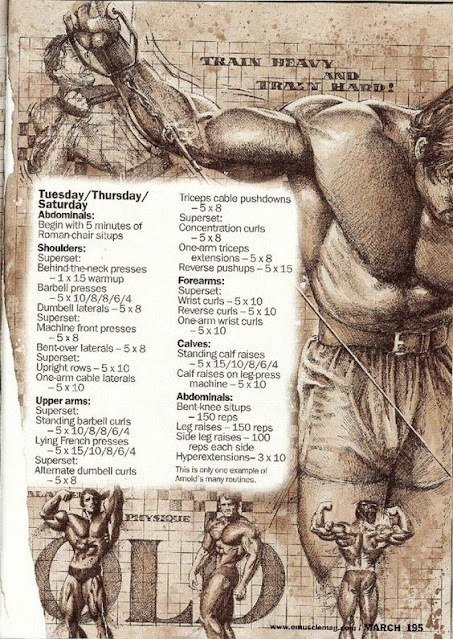 TRAIN HEAVY
AND
TRAIN HARD!
Tuesday/Thursday/
Saturday
Abdominals:
Begin with 5 minutes of
Roman-chair situps
Shoulders:
Superset:
Behind-the-neck presses
– 1 x 15 warmup
Barbell presses
– 5 x 10/8/8/6/4
Dumbell laterals – 5 x 8
Superset:
Machine front presses
– 5 x 8
Bent-over laterals – 5 x 8
Superset:
Upright rows – 5 x 10
One-arm cable laterals
– 5 x 10
Upper arms:
Superset:
Standing barbell curls
– 5 x 10/8/8/6/4
Lying French presses
– 5 x 15/10/8/6/4
Superset:
Alternate dumbell curls
– 5 x 8
Triceps cable pushdowns
– 5 x 8
Superset:
Concentration curls
– 5 x 8
One-arm triceps
extensions – 5 x 8
Reverse pushups – 5 x 15
Forearms:
Superset:
Wrist curls – 5 x 10
Reverse curls – 5 x 10
One-arm wrist curls
– 5 x 10
Calves:
Standing calf raises
– 5 x 15/10/8/6/4
Calf raises on leg-press
machine – 5 x 10
Abdominals:
Bent-knee situps
– 150 reps
Leg raises – 150 reps
Side leg raises – 100
reps each side
Hyperextensions – 3 x 10
This is only one example of
Arnold's many routines.
PHYSIQUE
OLD
www.emusclemag.com / MARCH 195